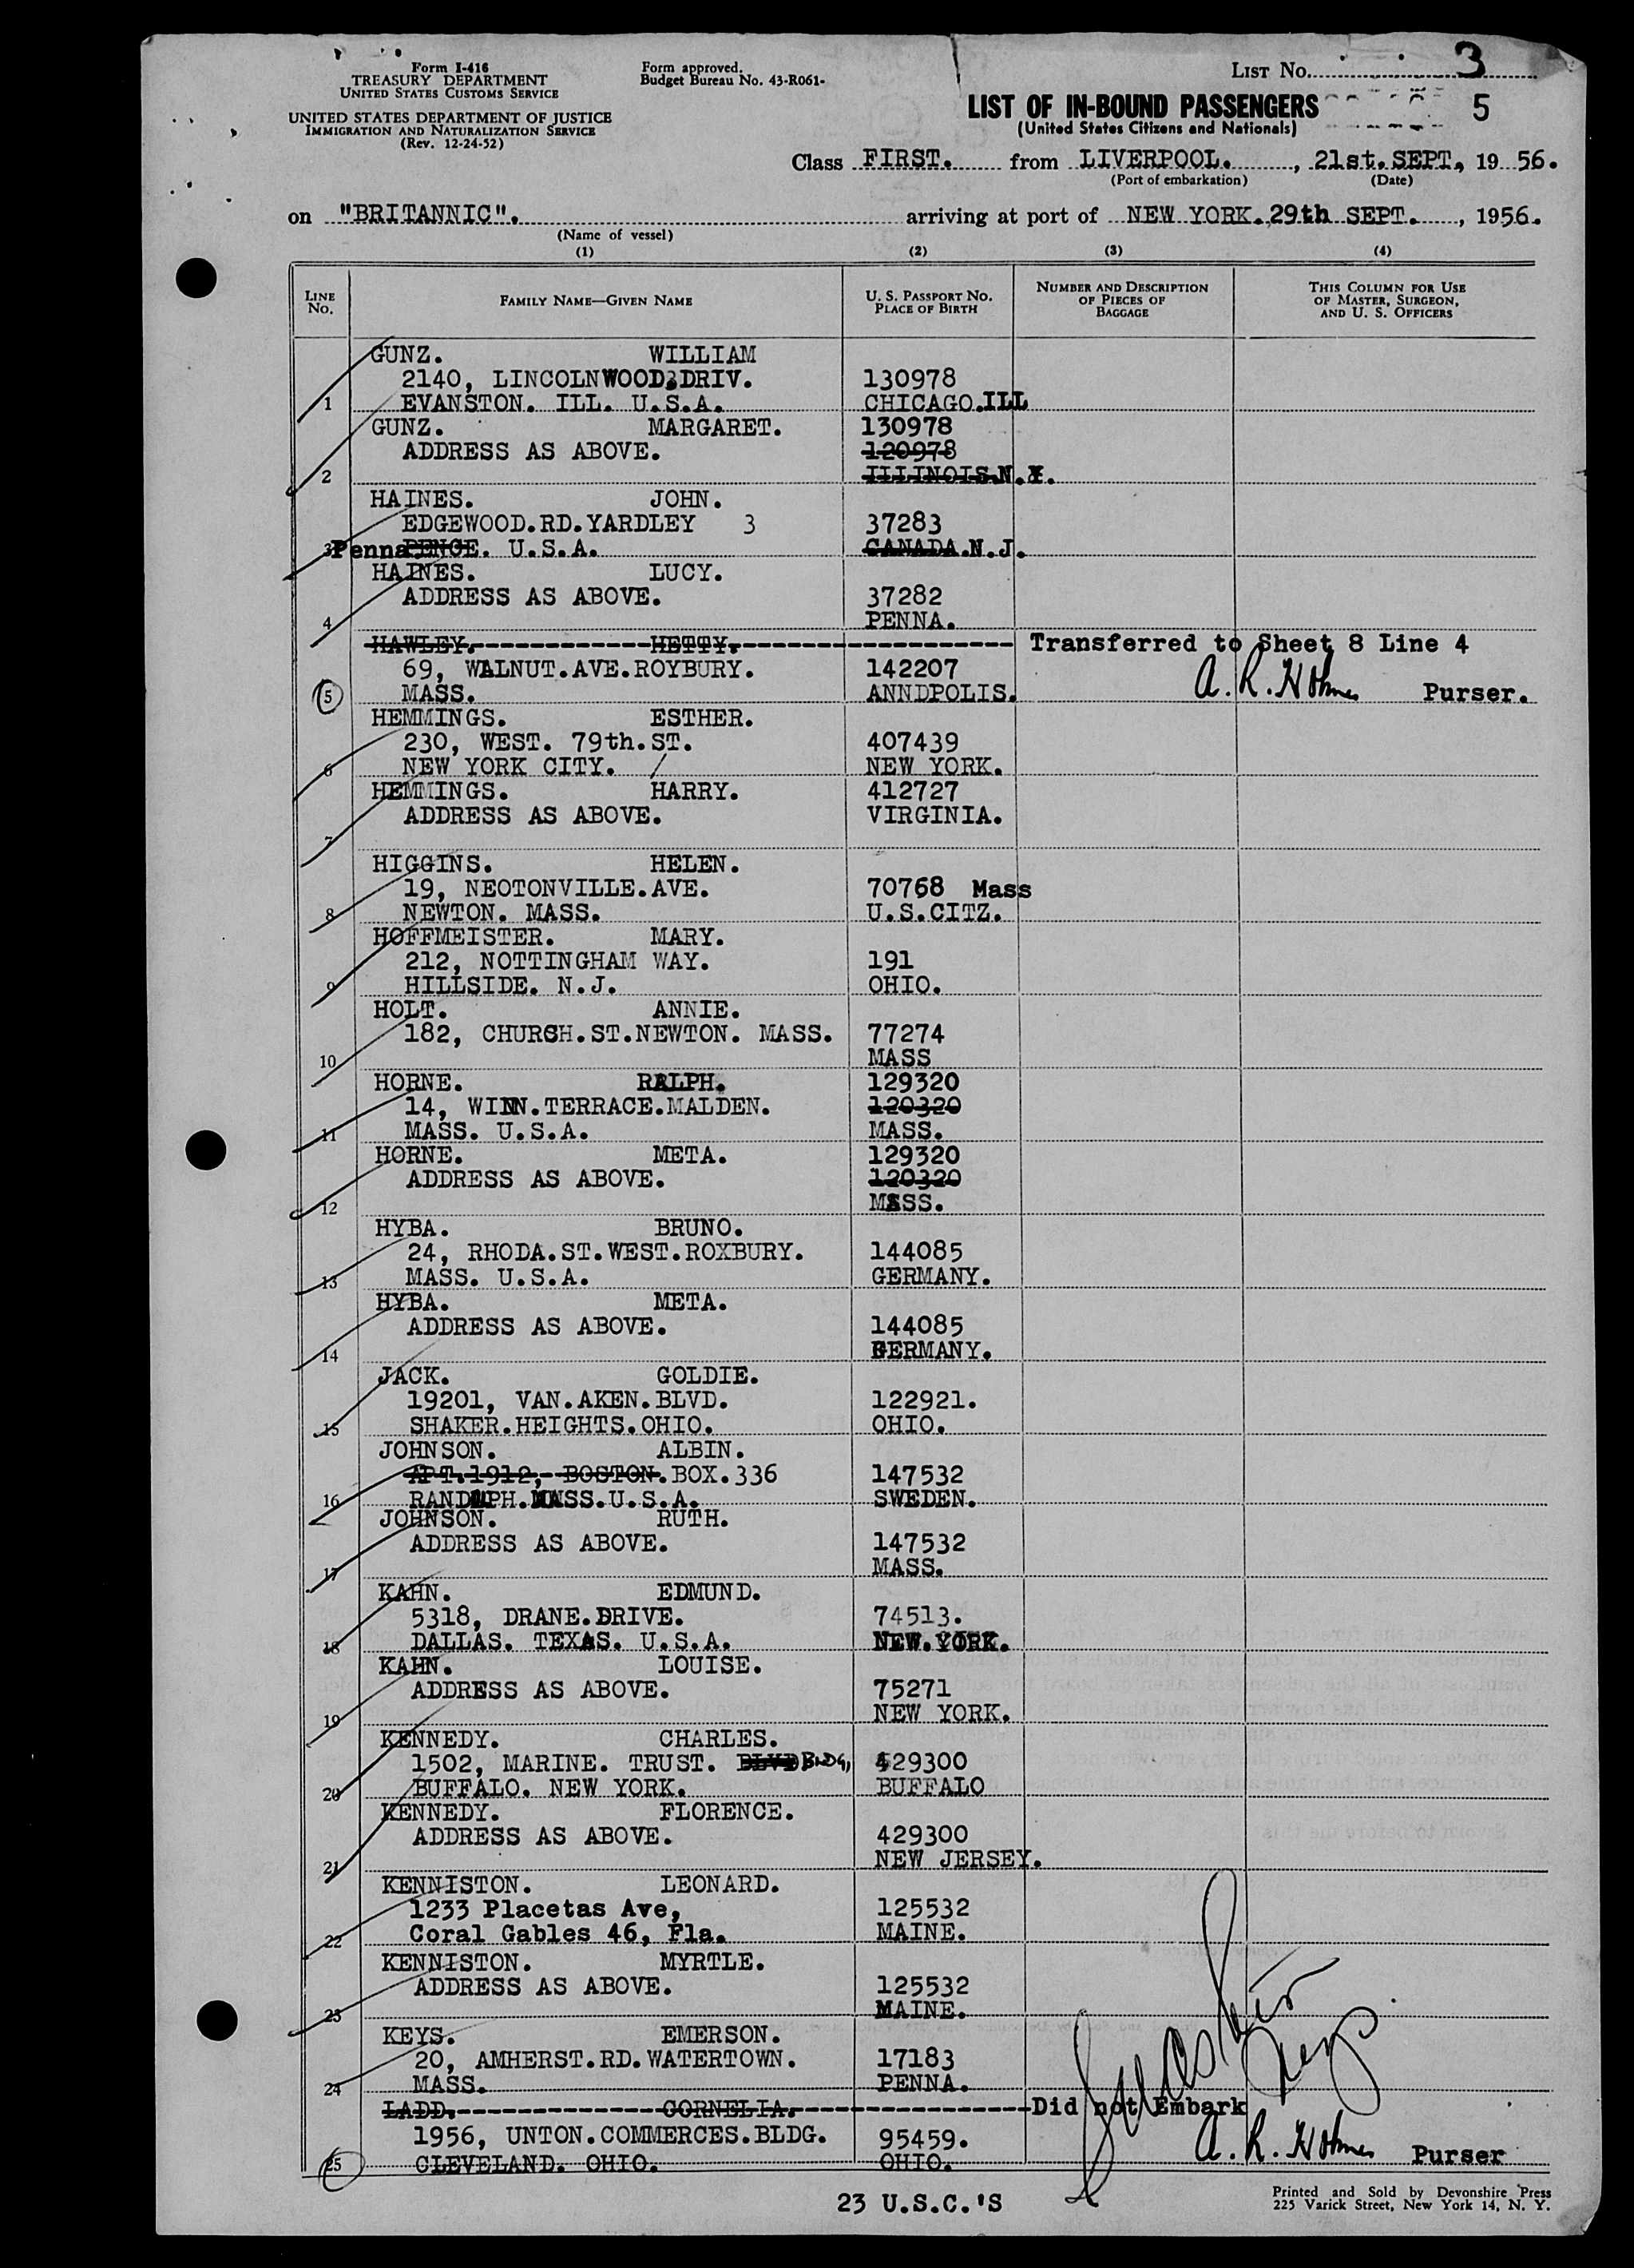 Form I-416
TREASURY DEPARTMENT
UNITED STATES CUSTOMS SERVICE
UNITED STATES DEPARTMENT OF JUSTICE
IMMIGRATION AND NATURALIZATION SERVICE
(Rev. 12-24-52)
Form approved.
Budget Bureau No. 43-R061-
LIST NO. 3
LIST OF IN-BOUND PASSENGERS 5
(United States Citizens and Nationals)
Class FIRST. from LIVERPOOL. , 21st.SEPT, 19 56.
(Port of embarkation) (Date)
on "BRITANNIC". arriving at port of NEW YORK. 29th SEPT. , 1956.
(Name of vessel)
(1) (2) (3) (4)
LINE NO. FAMILY NAME—GIVEN NAME U. S. PASSPORT NO. PLACE OF BIRTH NUMBER AND DESCRIPTION OF PIECES OF BAGGAGE THIS COLUMN FOR USE OF MASTER, SURGEON, AND U. S. OFFICERS
GUNZ. WILLIAM
2140, LINCOLNWOOD.DRIV. 130978
1 EVANSTON. ILL. U.S.A. CHICAGO.ILL
GUNZ. MARGARET. 130978
ADDRESS AS ABOVE. 120978
2 ILLINOIS.N.Y.
HAINES. JOHN.
EDGEWOOD.RD.YARDLEY 3 37283
3 Penna PENCE. U.S.A. CANADA.N.J.
HAINES. LUCY.
ADDRESS AS ABOVE. 37282
4 PENNA.
HAWLEY. HETTY. Transferred to Sheet 8 Line 4
69, WALNUT.AVE.ROYBURY. 142207
5 MASS. ANNDPOLIS. A. R. Holmes Purser.
HEMMINGS. ESTHER.
230, WEST. 79th.ST. 407439
6 NEW YORK CITY. / NEW YORK.
HEMMINGS. HARRY. 412727
ADDRESS AS ABOVE. VIRGINIA.
7
HIGGINS. HELEN.
19, NEOTONVILLE.AVE. 70768 Mass
8 NEWTON. MASS. U.S.CITZ.
HOFFMEISTER. MARY.
212, NOTTINGHAM WAY. 191
9 HILLSIDE. N.J. OHIO.
HOLT. ANNIE.
182, CHURCH.ST.NEWTON. MASS. 77274
10 MASS
HORNE. RALPH. 129320
14, WINN.TERRACE.MALDEN. 120320
11 MASS. U.S.A. MASS.
HORNE. META. 129320
ADDRESS AS ABOVE. 120320
12 MASS.
HYBA. BRUNO.
24, RHODA.ST.WEST.ROXBURY. 144085
13 MASS. U.S.A. GERMANY.
HYBA. META.
ADDRESS AS ABOVE. 144085
14 GERMANY.
JACK. GOLDIE.
19201, VAN.AKEN.BLVD. 122921.
15 SHAKER.HEIGHTS.OHIO. OHIO.
JOHNSON. ALBIN.
APT.1912,-BOSTON.BOX.336 147532
16 RANDLPH.MASS.U.S.A. SWEDEN.
JOHNSON. RUTH.
ADDRESS AS ABOVE. 147532
17 MASS.
KAHN. EDMUND.
5318, DRANE.DRIVE. 74513.
18 DALLAS. TEXAS. U.S.A. NEW.YORK.
KAHN. LOUISE.
ADDRESS AS ABOVE. 75271
19 NEW YORK.
KENNEDY. CHARLES.
1502, MARINE. TRUST. BLVD BLDG, 429300
20 BUFFALO. NEW YORK. BUFFALO
KENNEDY. FLORENCE.
ADDRESS AS ABOVE. 429300
21 NEW JERSEY.
KENNISTON. LEONARD.
1233 Placetas Ave, 125532
22 Coral Gables 46, Fla. MAINE.
KENNISTON. MYRTLE.
ADDRESS AS ABOVE. 125532
23 MAINE.
KEYS. EMERSON.
20, AMHERST.RD.WATERTOWN. 17183
24 MASS. PENNA.
LADD. CORNELIA. Did not Embark
1956, UNTON.COMMERCES.BLDG. 95459.
25 CLEVELAND. OHIO. OHIO. A. R. Holmes Purser
23 U.S.C.'S
Printed and Sold by Devonshire Press
225 Varick Street, New York 14, N. Y.